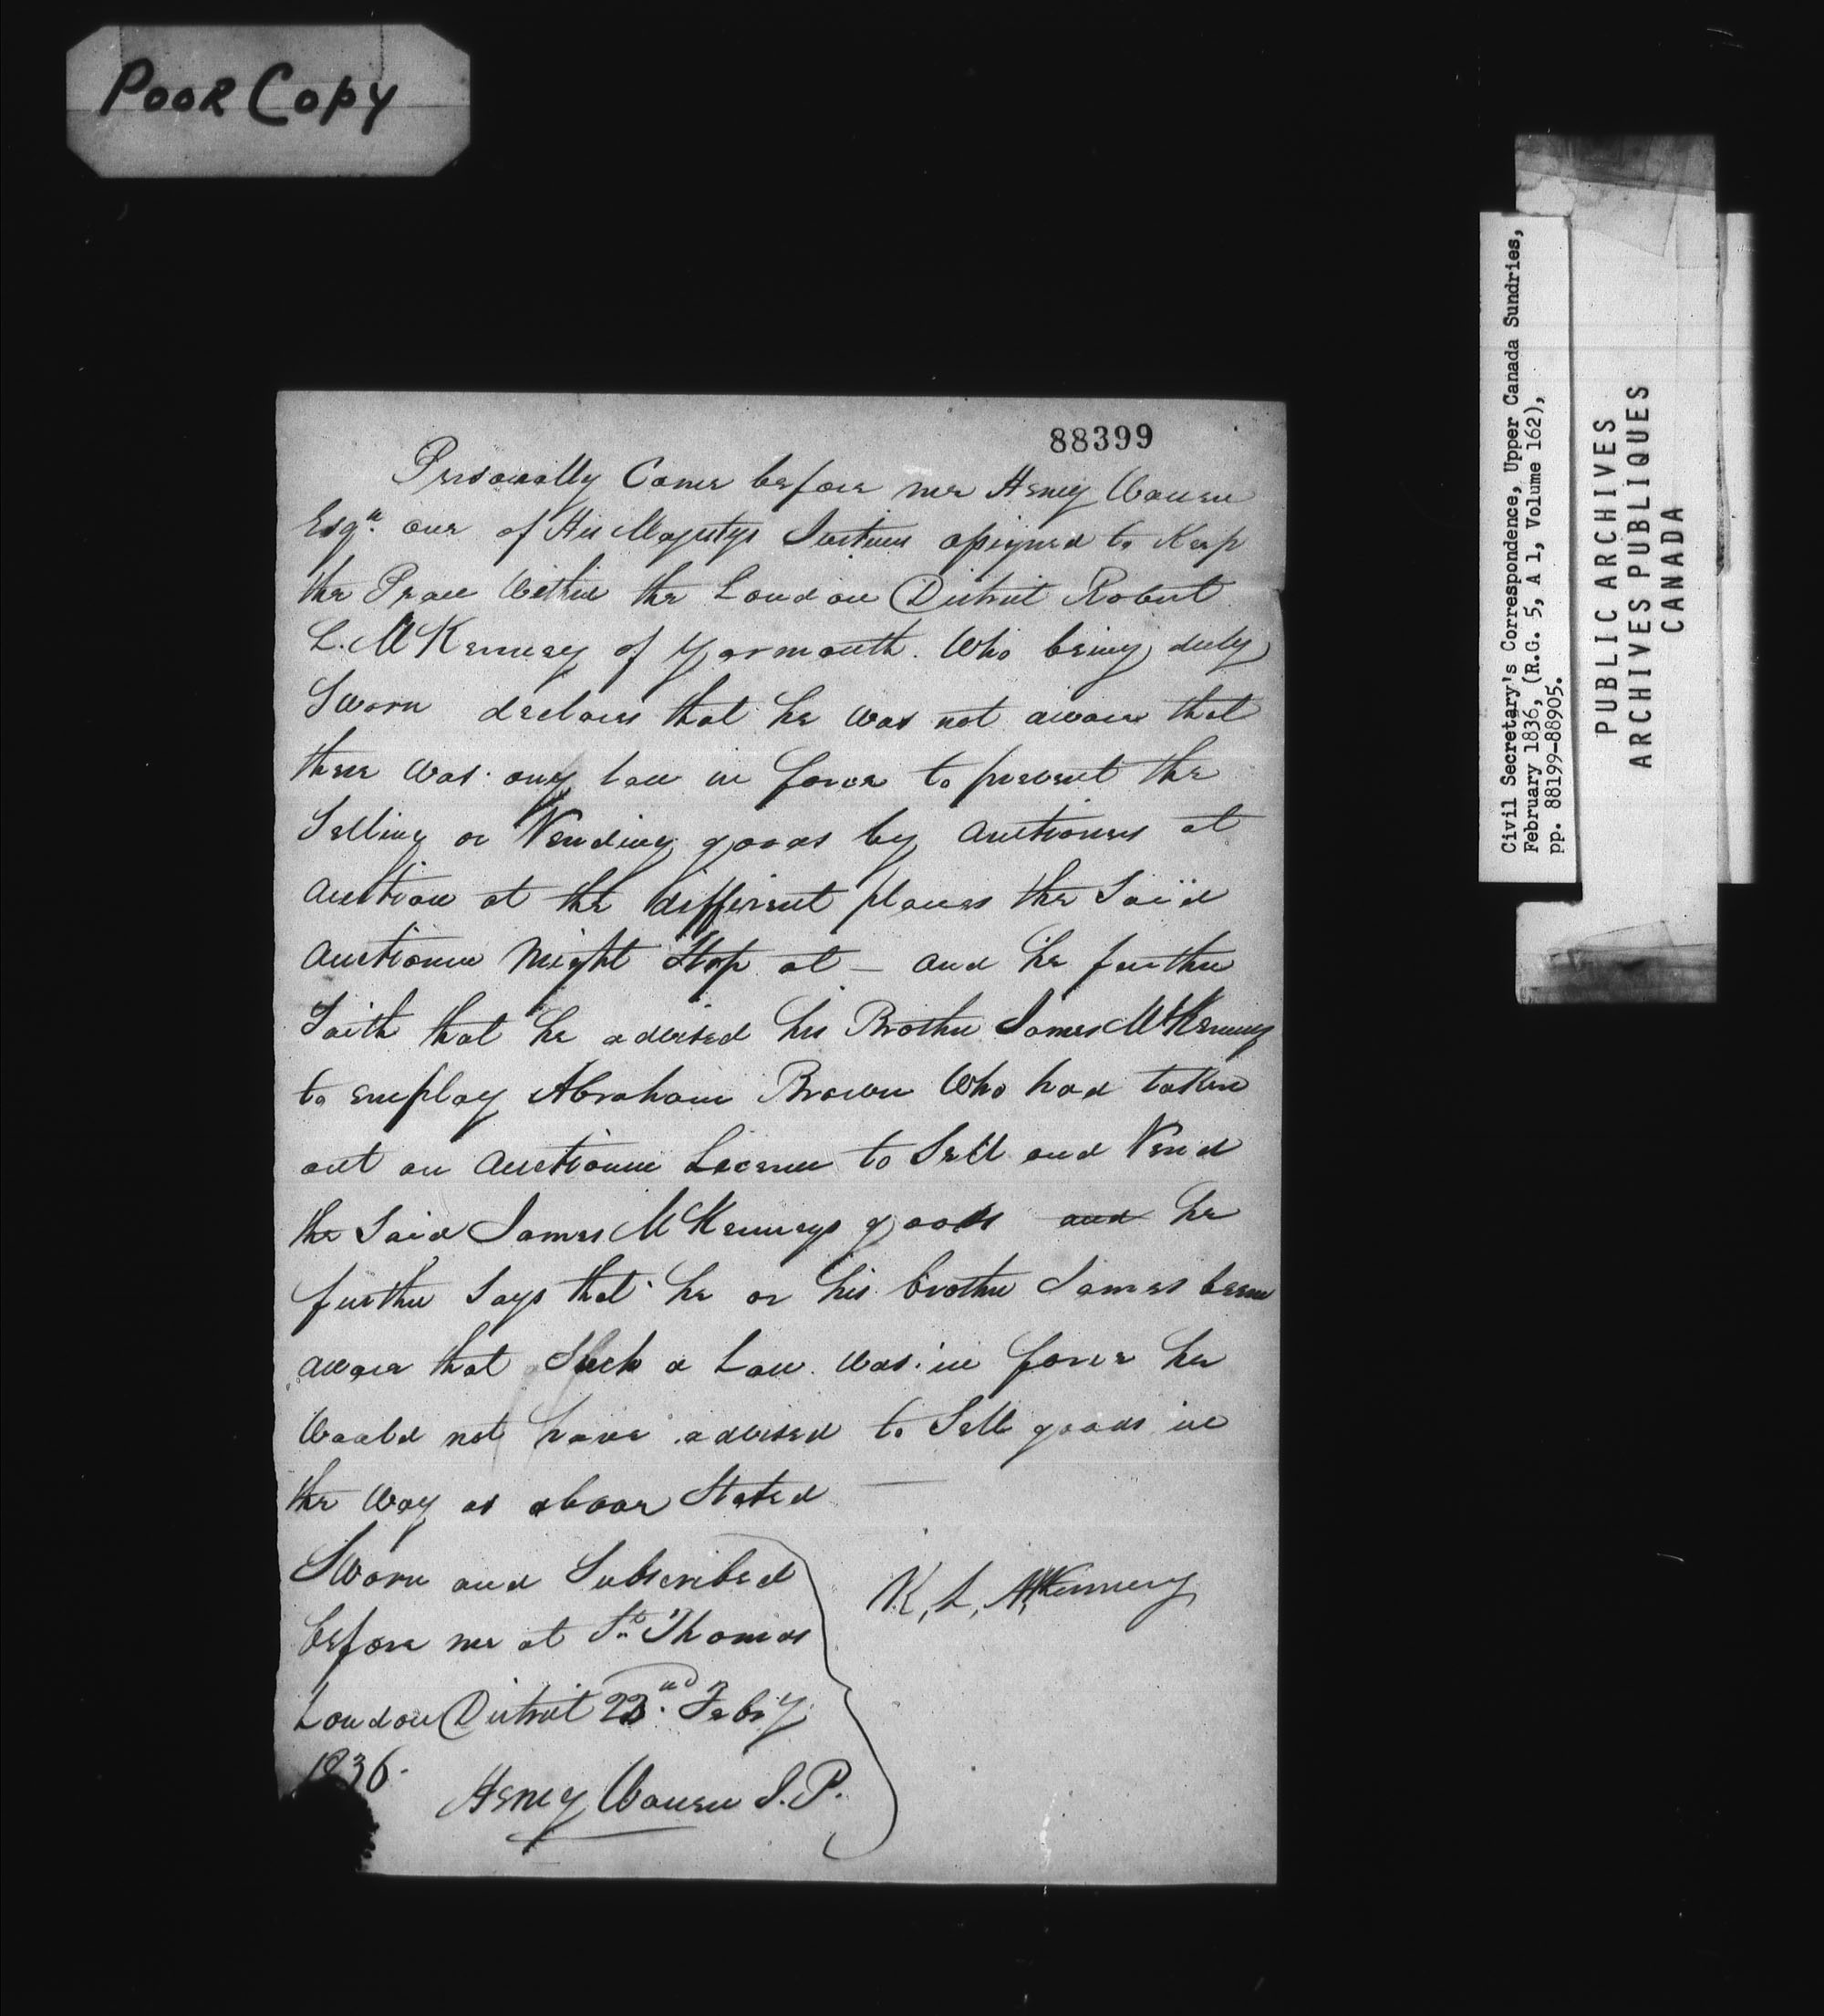 POOR COPY
88399
Personally Came before me Henry Warren
Esqr. one of His Majestys Justices assigned to Keep
the Peace Within the London District Robert
L. McKenney of Yarmouth. Who being duly
Sworn declares that he was not aware that
there was any Law in force to prevent the
Selling or Vending goods by Auctioneers at
Auction at the different places the Said
Auctioneer Might Stop at – and he further
Saith that he advised his Brother James McKenney
to employ Abraham Brown Who had taken
out an Auctioneer License to Sell and Vend
the Said James McKenneys goods and he
further Says that he or his brother James been
aware that Such a Law was in force he
Would not have advised to Sell goods in
the Way as above Stated
Sworn and Subscribed
before me at St. Thomas
London District 22nd Feby
1836.
Henry Warren J.P.
R, L, McKenney
Civil Secretary's Correspondence, Upper Canada Sundries,
February 1836, (R.G. 5, A 1, Volume 162),
pp. 88199-88905.
PUBLIC ARCHIVES
ARCHIVES PUBLIQUES
CANADA